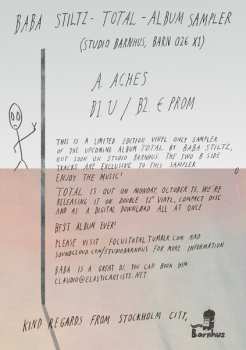 BABA STILTZ - TOTAL - ALBUM SAMPLER
(STUDIO BARNHUS, BARN 026 X1)
A. ACHES
B1 U / B2. E PROM
THIS IS A LIMITED EDITION VINYL ONLY SAMPLER
OF THE UPCOMING ALBUM TOTAL BY BABA STILTZ,
OUT SOON ON STUDIO BARNHUS. THE TWO B SIDE
TRACKS ARE EXCLUSIVE TO THIS SAMPLER
ENJOY THE MUSIC!
TOTAL IS OUT ON MONDAY, OCTOBER 13. WE'RE
RELEASING IT ON DOUBLE 12" VINYL, COMPACT DISC
AND AS A DIGITAL DOWNLOAD ALL AT ONCE
BEST ALBUM EVER!
PLEASE VISIT TUMBLR.COM AND
SOUNDCLOUD.COM/STUDIOBARNHUS FOR MORE INFORMATION
BABA IS A GREAT DJ. YOU CAN BOOK HIM
CLAUDIO@ELASTICARTISTS.NET
KIND REGARDS FROM STOCKHOLM CITY,
Barnhus